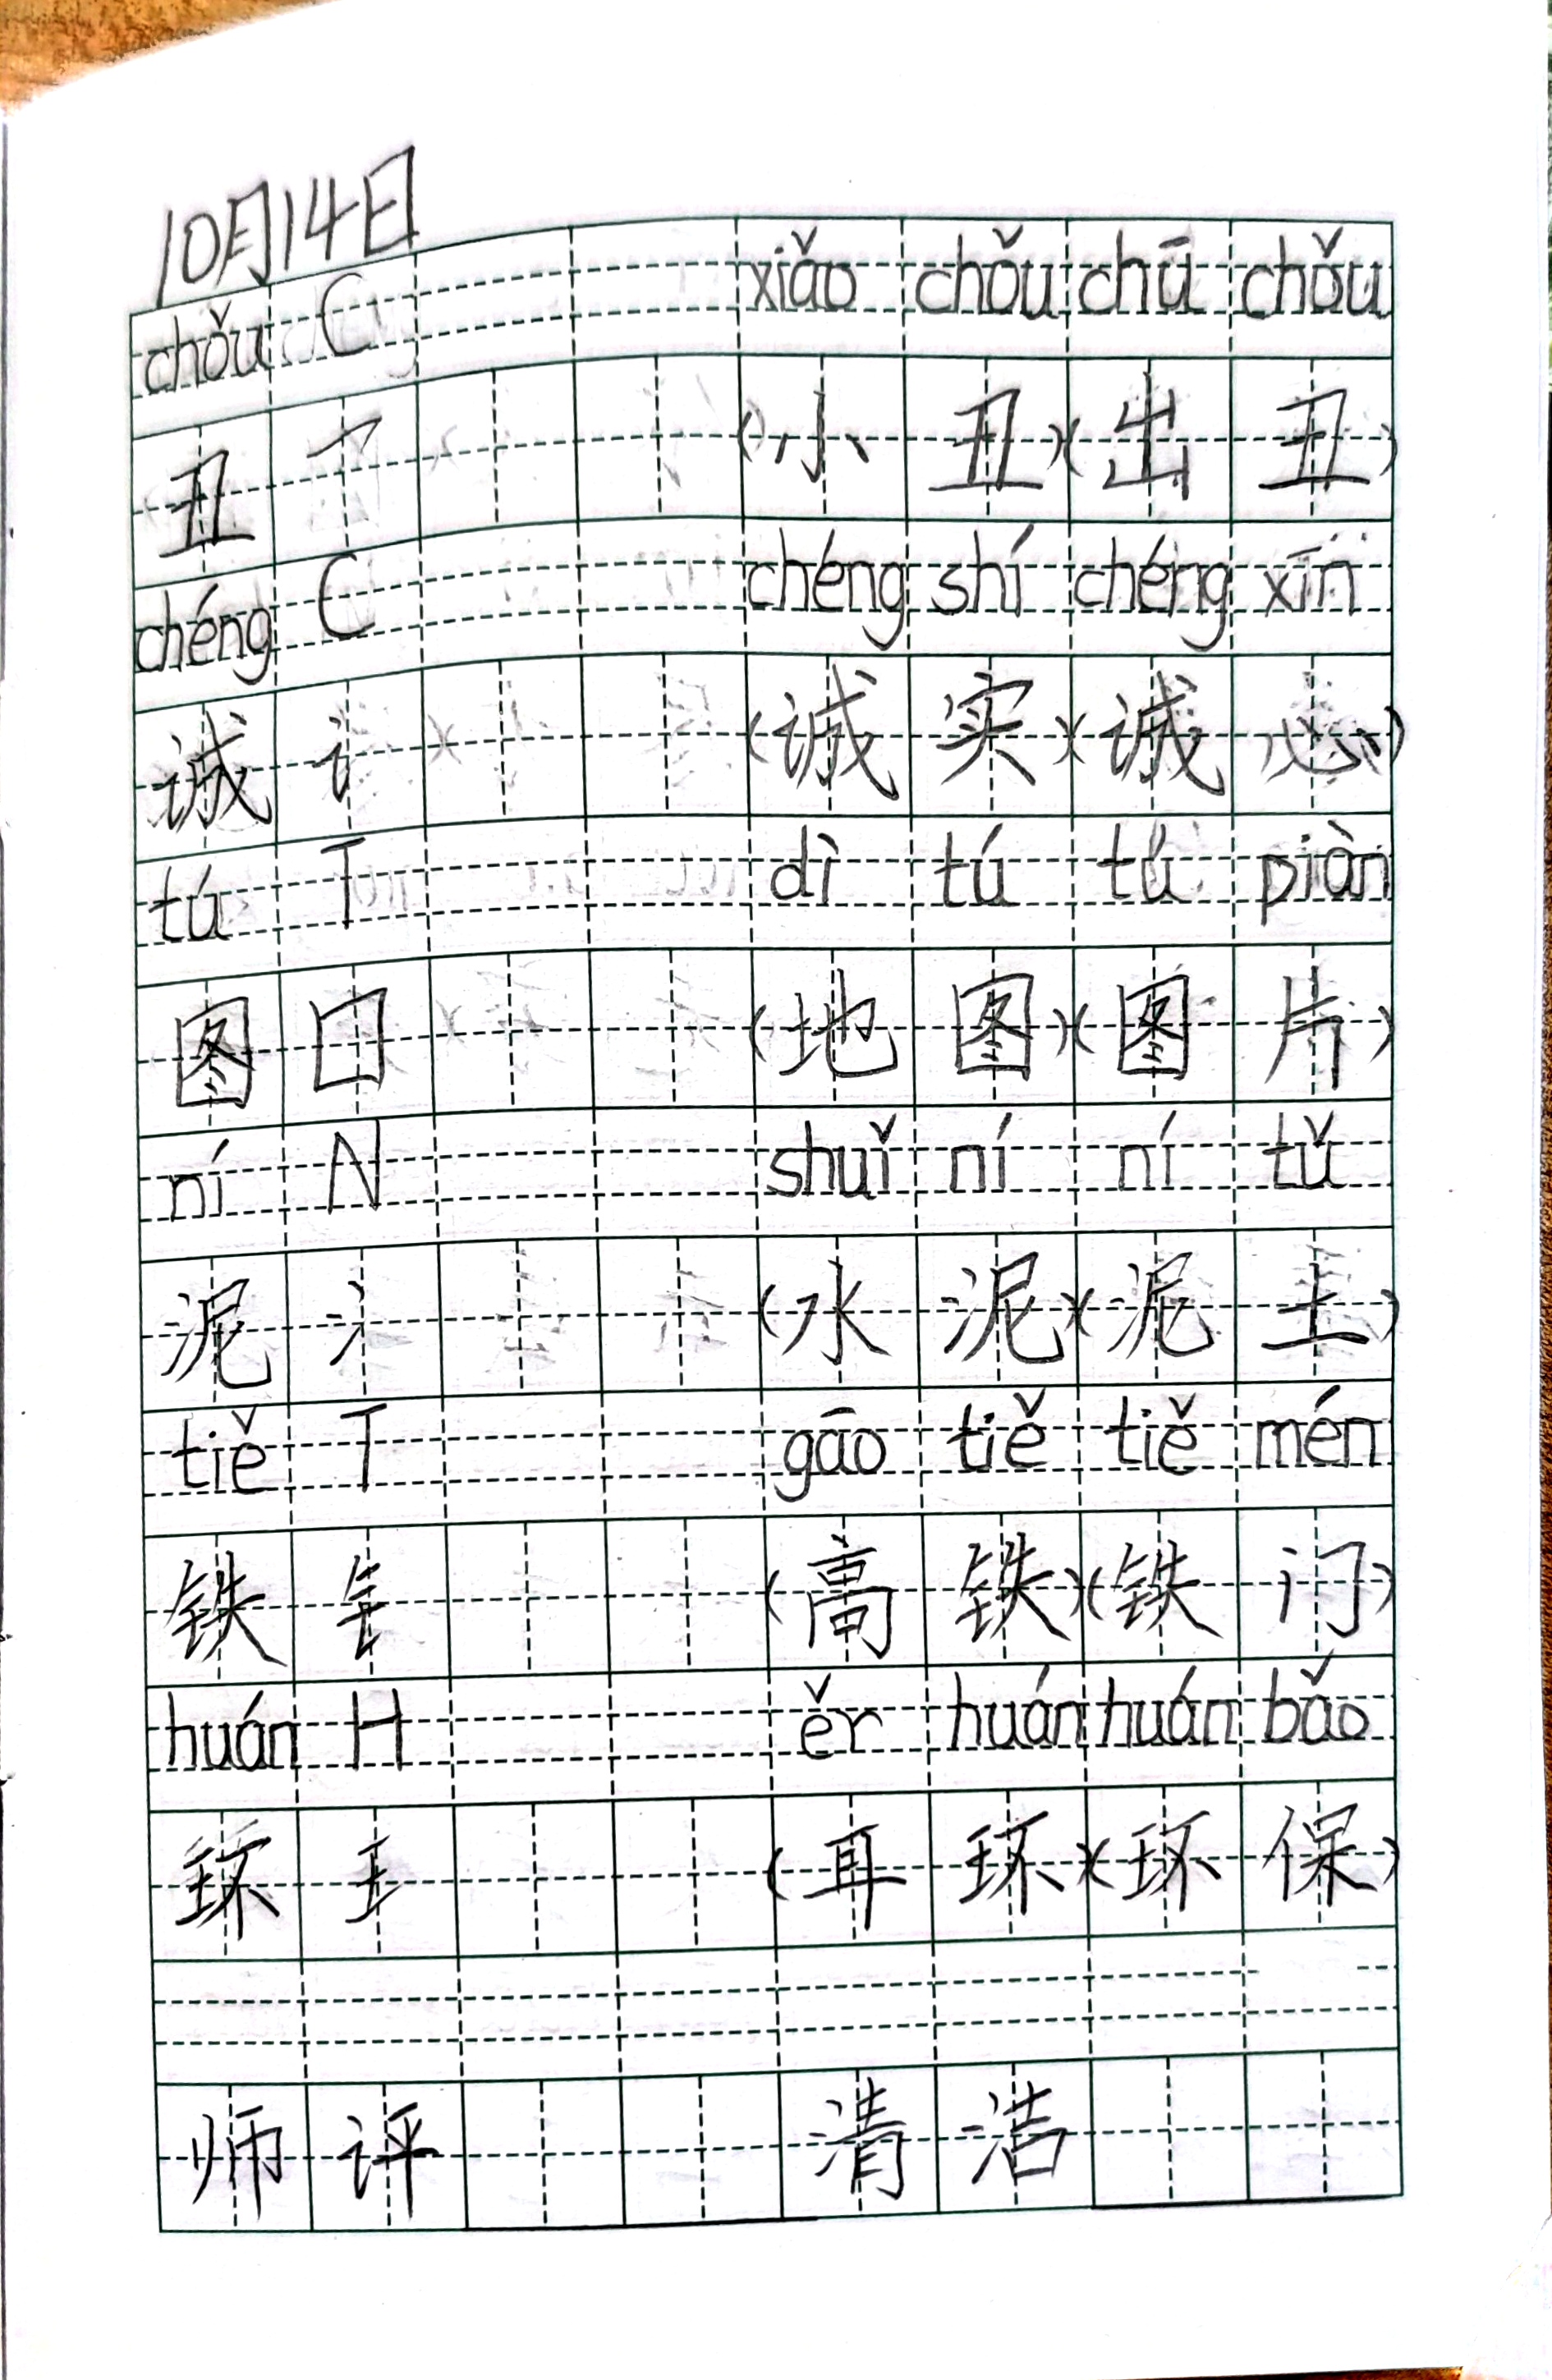 10月14日
chǒu C xiǎo chǒu chū chǒu
丑 乛 (小 丑)(出 丑)
chéng C chéng shí chéng xīn
诚 讠 (诚 实)(诚 心)
tú T dì tú tú piàn
图 囗 (地 图)(图 片)
ní N shuǐ ní ní tǔ
泥 氵 (水 泥)(泥 土)
tiě T gāo tiě tiě mén
铁 钅 (高 铁)(铁 门)
huán H ěr huán huán bǎo
环 王 (耳 环)(环 保)
师 评 清 洁